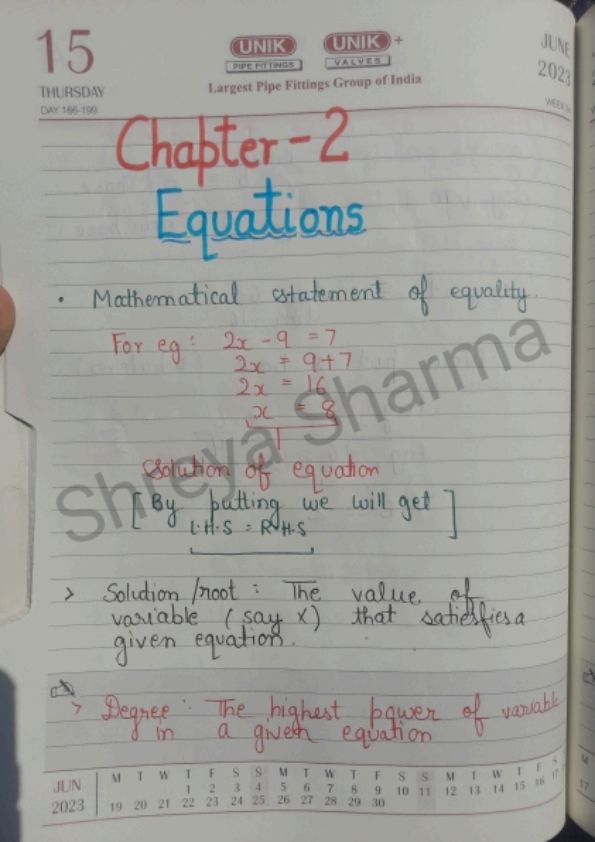 15
THURSDAY
DAY 166-199
UNIK
PIPE FITTINGS
UNIK+
VALVES
Largest Pipe Fittings Group of India
JUNE
2023
Chapter-2
Equations
• Mathematical statement of equality.
For eg: 2x - 9 = 7
2x = 9+7
2x = 16
x = 8
Solution of equation
[By putting we will get]
L.H.S = R.H.S
> Solution/root: The value of
variable (say x) that satisfies a
given equation.
> Degree: The highest power of variable
in a given equation
Shreya Sharma
JUN
2023
M T W T F S S M T W T F S S M T W T F S S
1 2 3 4 5 6 7 8 9 10 11 12 13 14 15 16 17
19 20 21 22 23 24 25 26 27 28 29 30